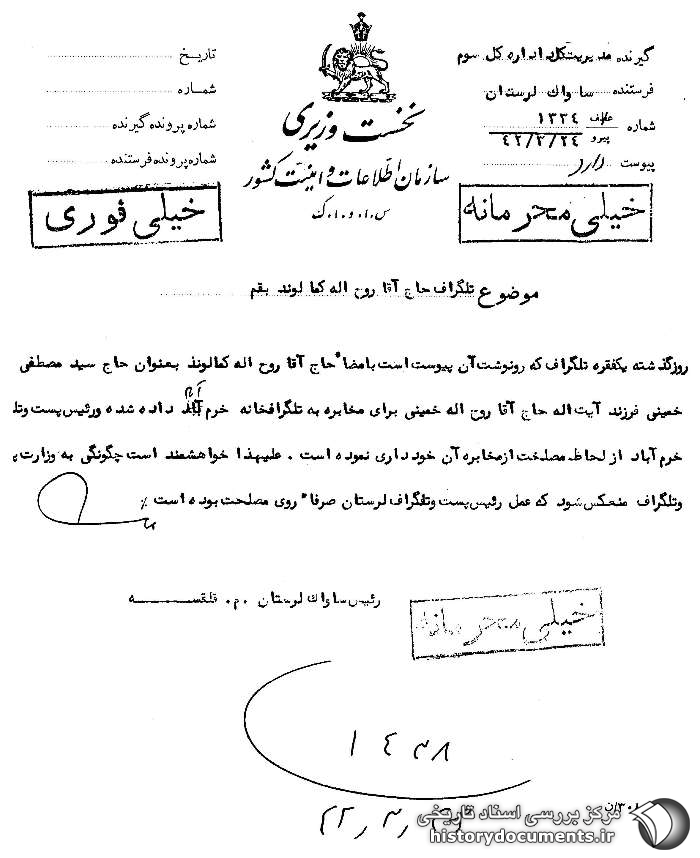 گیرنده مدیریت کل اداره کل سوم
فرستنده ساواک لرستان
شماره ۱۳۲۴
پیرو ۴۲/۳/۲۴
پیوست دارد
نخست وزیری
سازمان اطلاعات و امنیت کشور
س.ا.و.ا.ک
تاریخ
شماره
شماره پرونده گیرنده
شماره پرونده فرستنده
خیلی محرمانه
خیلی فوری
موضوع تلگراف حاج آقا روح اله کمالوند بقم
روزگذشته یکفقره تلگراف که رونوشت آن پیوست است بامضاء حاج آقا روح اله کمالوند بعنوان حاج سید مصطفی
خمینی فرزند آیت اله حاج آقا روح اله خمینی برای مخابره به تلگرافخانه خرم آباد داده شده ورئیس پست وتلـ
خرم آباد از لحاظ مصلحت ازمخابره آن خودداری نموده است . علیهذا خواهشمند است چگونگی به وزارت پـ
وتلگراف منعکس شود که عمل رئیس پست وتلگراف لرستان صرفاً روی مصلحت بوده است ٪
رئیس ساواک لرستان .م. قلقسه
خیلی محرمانه
۱۴۳۸
مرکز بررسی اسناد تاریخی
historydocuments.ir